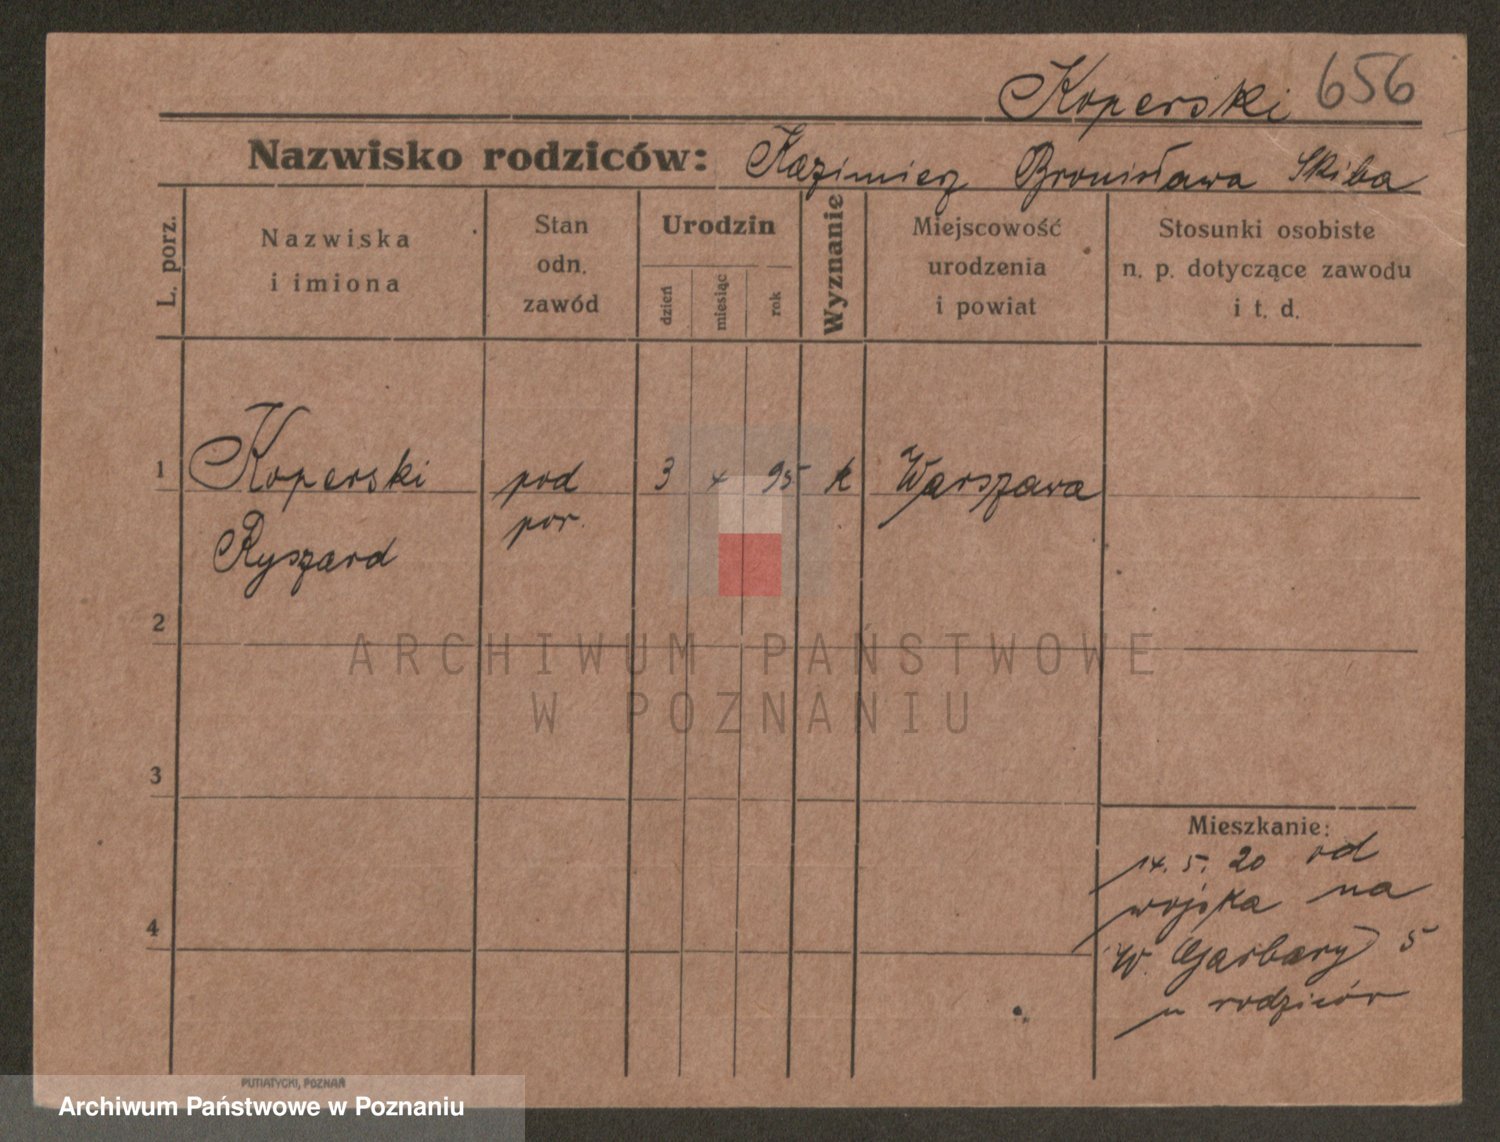 Koperski 656
Nazwisko rodziców: Kazimierz Bronisława Skiba
L. porz.
Nazwiska
i imiona
Stan
odn.
zawód
Urodzin
dzień
miesiąc
rok
Wyznanie
Miejscowość
urodzenia
i powiat
Stosunki osobiste
n. p. dotyczące zawodu
i t. d.
1 Koperski pod 3 x 95 k Warszawa
Ryszard por.
2
3
4
Mieszkanie:
14. 5. 20 od
wojska na
W. Garbary 5
u rodziców
ARCHIWUM PAŃSTWOWE
W POZNANIU
PUTIATYCKI, POZNAŃ
Archiwum Państwowe w Poznaniu